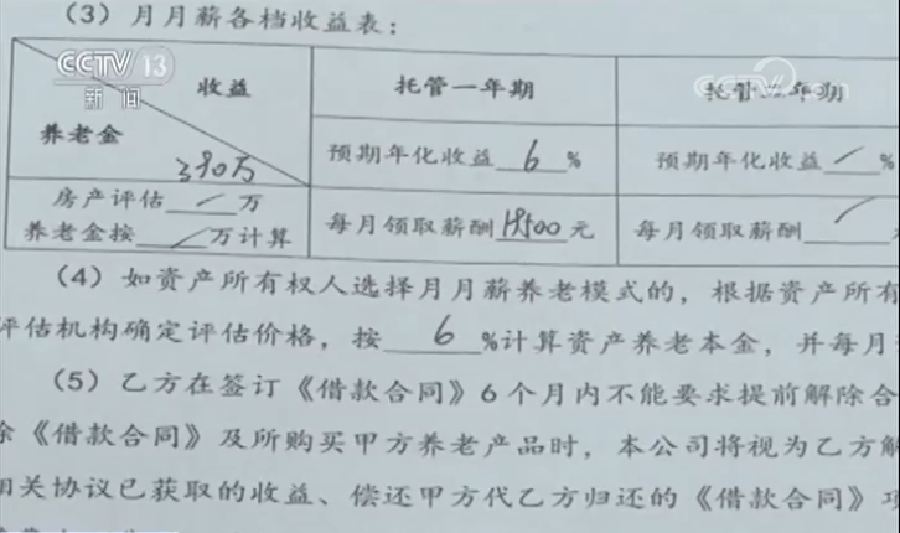 (3) 月月薪各档收益表:
CCTV 13
新闻
收益
养老金
390万
托管一年期
托管二年期
预期年化收益 6 %
预期年化收益 %
房产评估 万
养老金按 万计算
每月领取薪酬 19500 元
每月领取薪酬
(4) 如资产所有权人选择月月薪养老模式的,根据资产所有
评估机构确定评估价格,按 6 %计算资产养老本金,并每月
(5) 乙方在签订《借款合同》6个月内不能要求提前解除合
除《借款合同》及所购买甲方养老产品时,本公司将视为乙方解
相关协议已获取的收益、偿还甲方代乙方归还的《借款合同》项